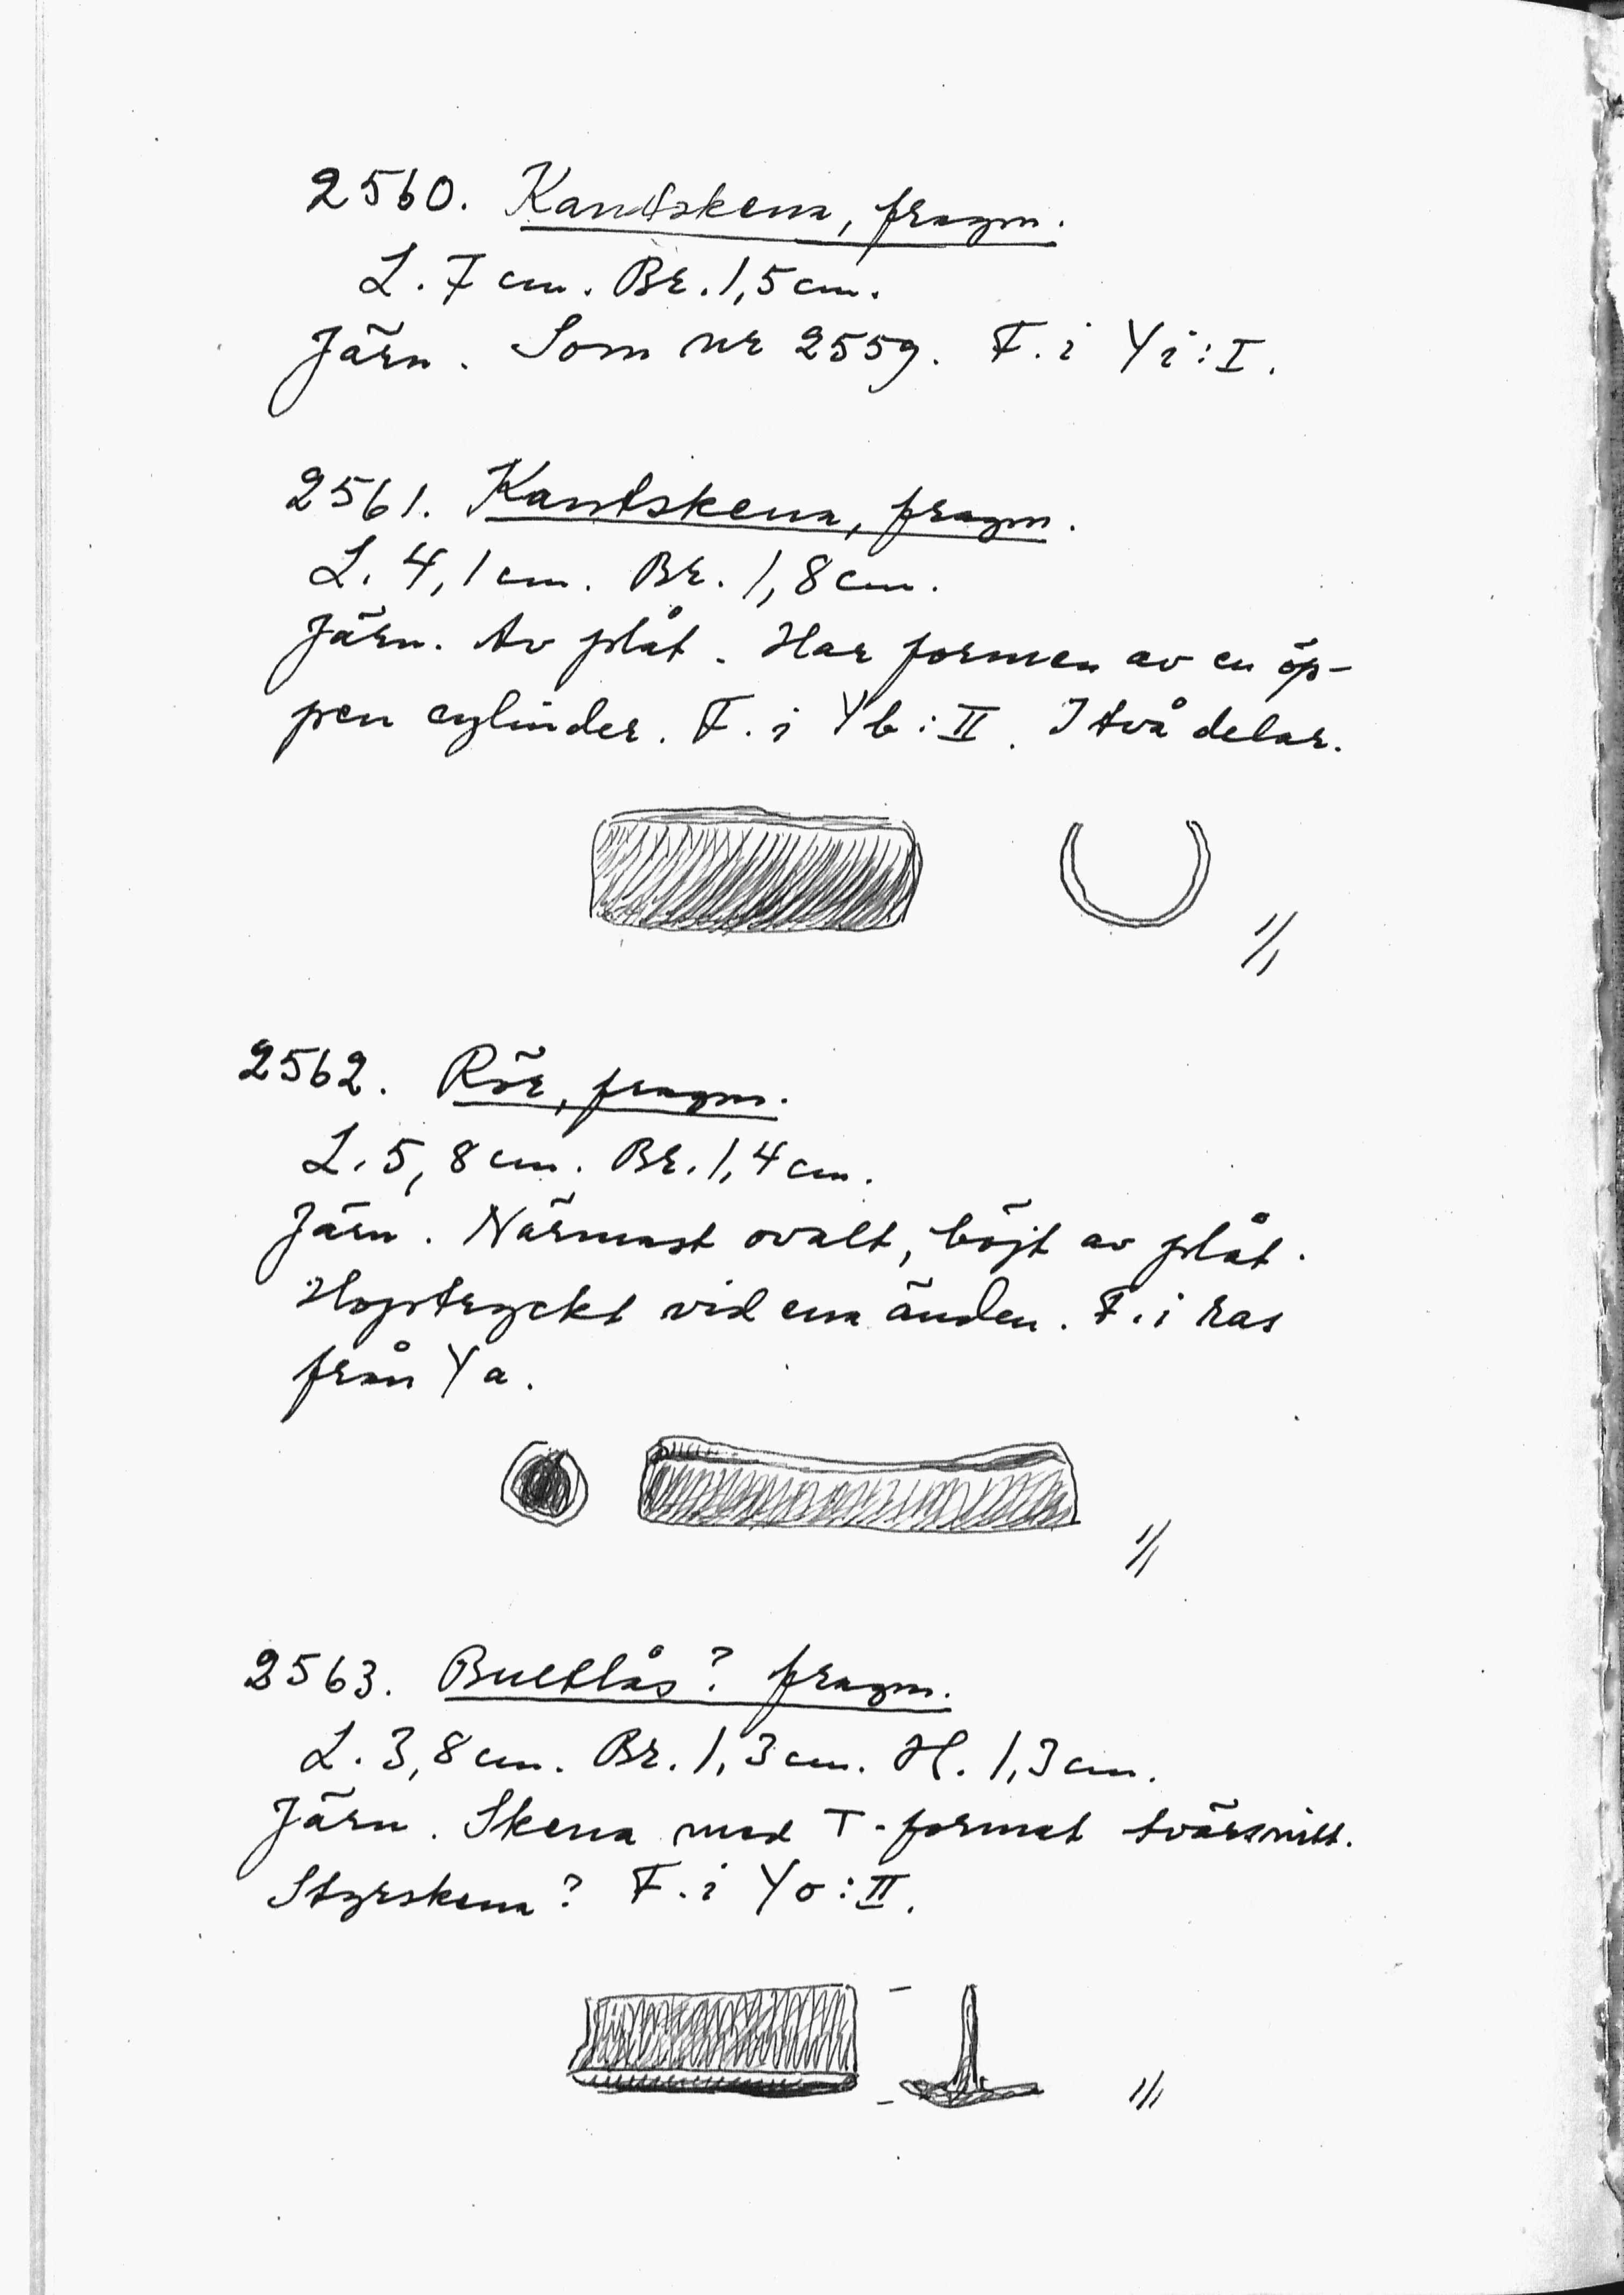 2560. Kantskena, fragm.
L. 7 cm. Br. 1,5 cm.
Järn. Som nr 2559. F. i Yi:I.
2561. Kantskena, fragm.
L. 4,1 cm. Br. 1,8 cm.
Järn. Av plåt. Har formen av en öp-
pen cylinder. F. i Yb:II. I två delar.
1/1
2562. Rör, fragm.
L. 5,8 cm. Br. 1,4 cm.
Järn. Närmast ovalt, böjt av plåt.
Hoptryckt vid ena änden. F. i ras
från Ya.
1/1
2563. Bultlås? fragm.
L. 3,8 cm. Br. 1,3 cm. H. 1,3 cm.
Järn. Skena med T-format tvärsnitt.
Styrskena? F. i Yo:II.
1/1